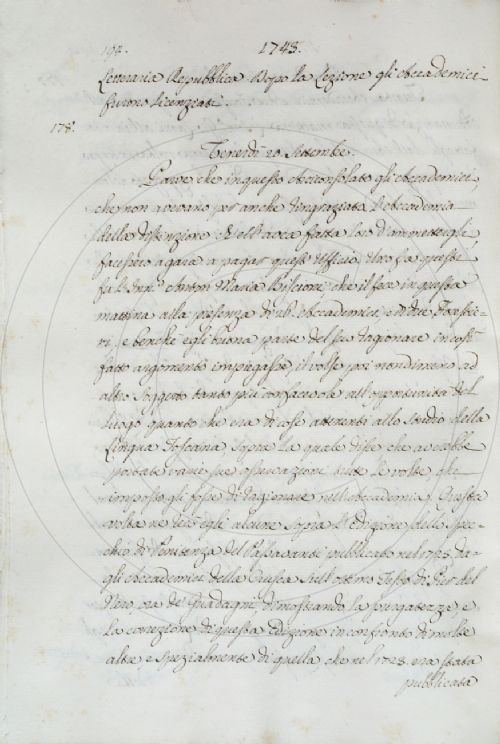 194.
1743.
Letteraria Repubblica. Dopo la Lezione gli Accademici
furono licenziati.
178.
Venerdì 20. Settembre.
Parve che in questo Arciconsolato gli Accademici
che non avevano per anche ringraziata l'Accademia
della distinzione ch'ell'aveva fatta loro d'ammettergli
facessero a gara a pagar quest'Ufficio. Uno fra questi
fu l'Inn.º Anton Maria Biscioni che il fece in questa
mattina alla presenza di 16. Accademici, e di due Forestie-
ri, e benchè egli buona parte del suo ragionare in cosi
fatto argomento impiegasse, il volse poi nondimeno ad
altro Soggetto tanto più confacevole all'opportunità del
luogo quanto che era di cose attenenti allo studio della
Lingua Toscana, sopra la quale disse che avrebbe
portate varie sue osservazioni tutte le volte, che
imposto gli fosse di ragionare nell'Accademia. Questa
volta ne recò egli alcune sopra l'Edizione dello Spec-
chio di Penitenza del Passavanti pubblicato nel 1725. da-
gli Accademici della Crusca sull'ottimo Testo di Pier del
Nero, ora de' Guadagni dimostrando la purgatezza, e
la correzione di questa Edizione in confronto di molte
altre e spezialmente di quella, che nel 1723. era stata
pubblicata